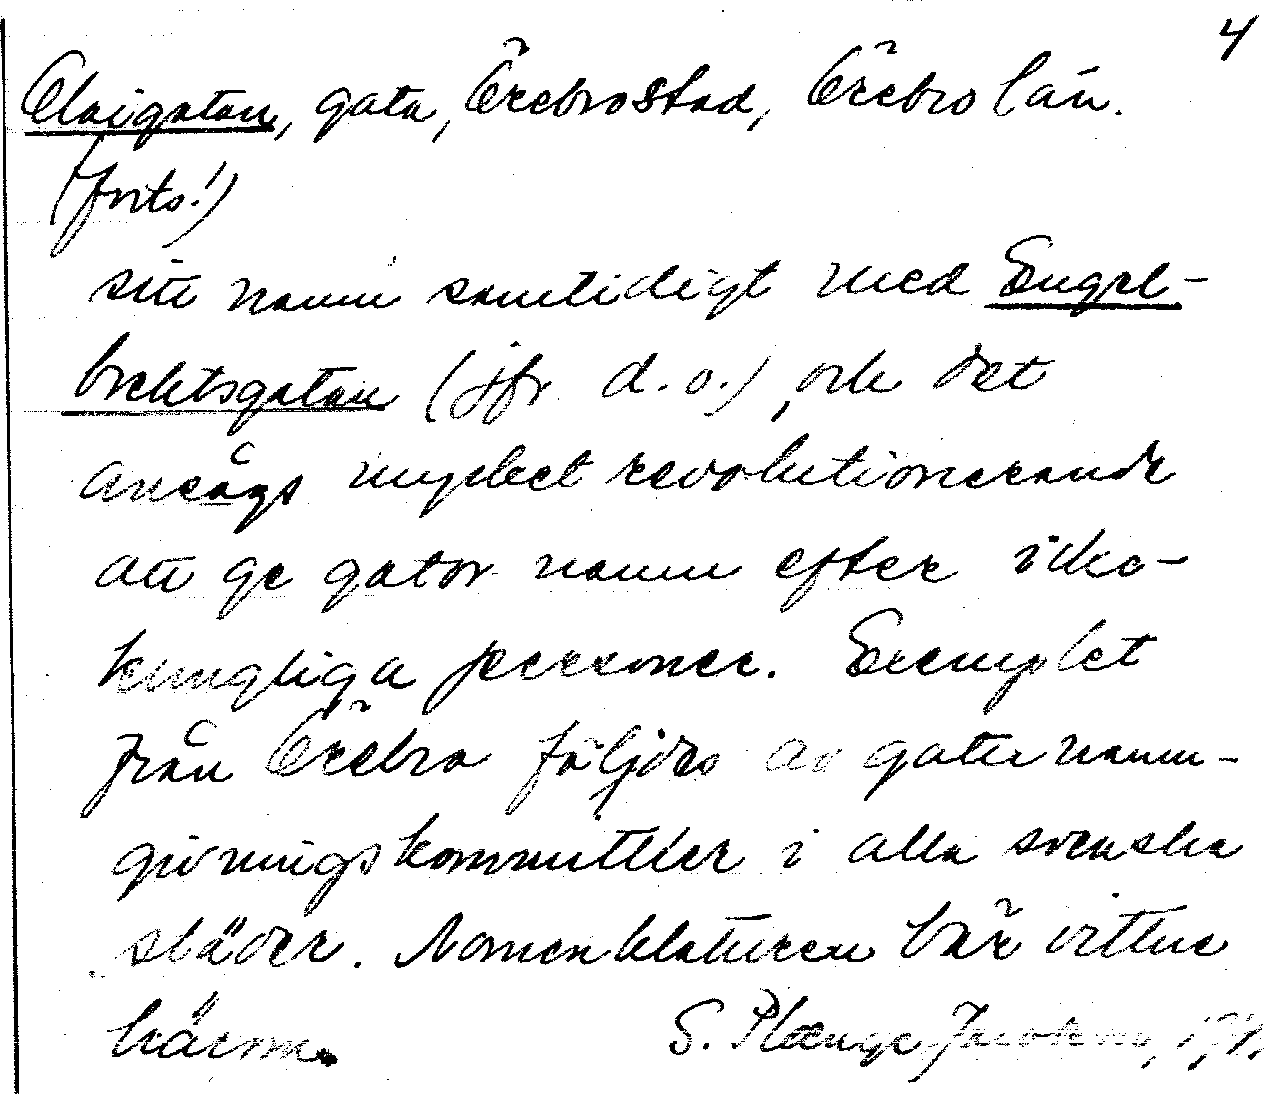 4
Olaigatan, gata, Örebro stad, Örebro län.
(forts!)
sitt namn samtidigt med Engel-
brektsgatan (jfr d.o.), och det
ansågs mycket revolutionerande
att ge gator namn efter icke-
kungliga personer. Exemplet
från Örebro följdes av gatunamn-
givningskommittéer i alla svenska
städer. Nomenklaturen bär vittne
härom. S. Plænge Jacobson,